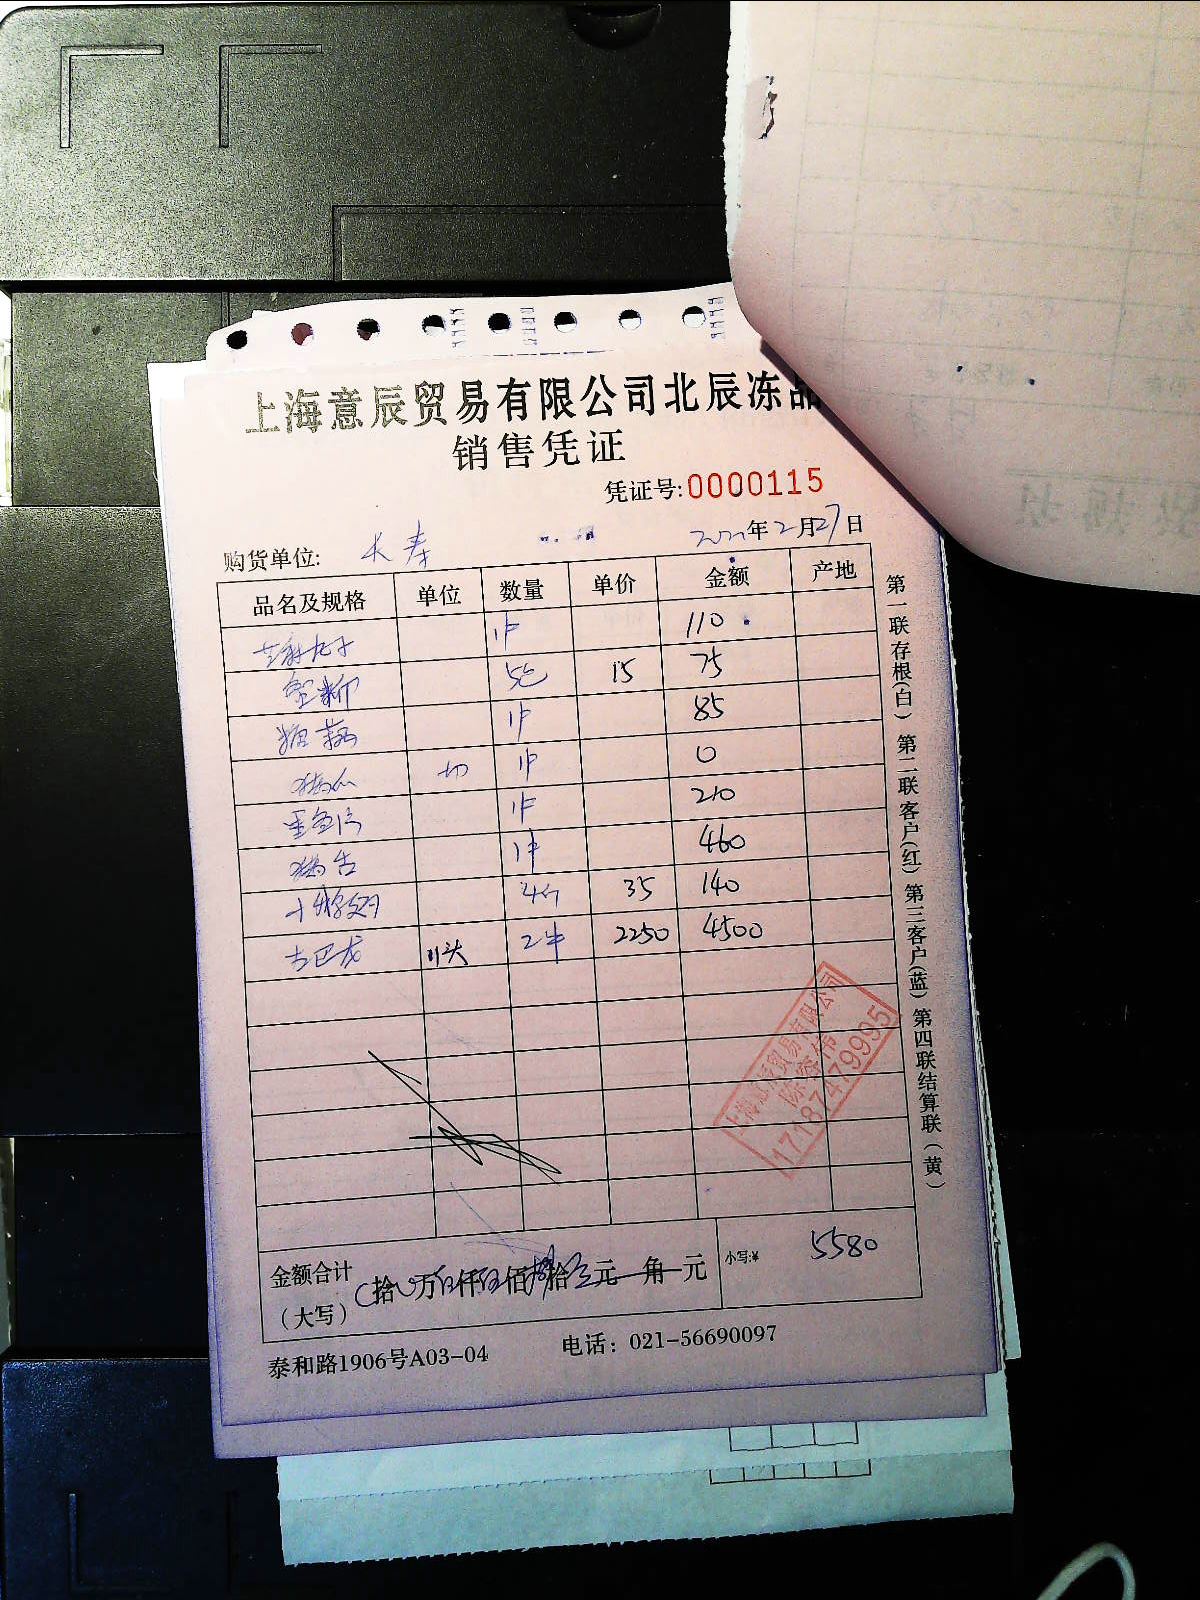 上海意辰贸易有限公司北辰冻品
销售凭证
凭证号:0000115
购货单位: 长寿 年2月27日
品名及规格 单位 数量 单价 金额 产地
丸子 1件 110
5包 15 75
糯藕 1件 85
切 1件 0
1件 210
猪舌 1件 460
4个 35 140
古巴龙 11头 2件 2250 4500
上海意辰贸易有限公司
17187479995
金额合计
(大写) 拾 万伍仟伍佰捌拾 元 角 元 小写:¥ 5580
泰和路1906号A03-04 电话: 021-56690097
第一联存根(白) 第二联客户(红) 第三客户(蓝) 第四联结算联(黄)